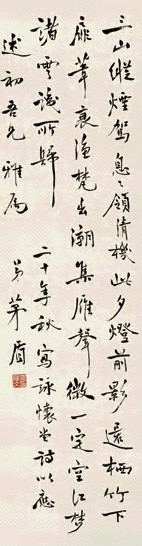 三山縱煙駕息息領情機此夕燈前影還栖竹下
扉葦裏漁梵出潮集雁聲微一定空江夢
諸雲識所歸 二十年秋寫詠懷堂詩以應
述初吾兄雅屬 弟茅盾